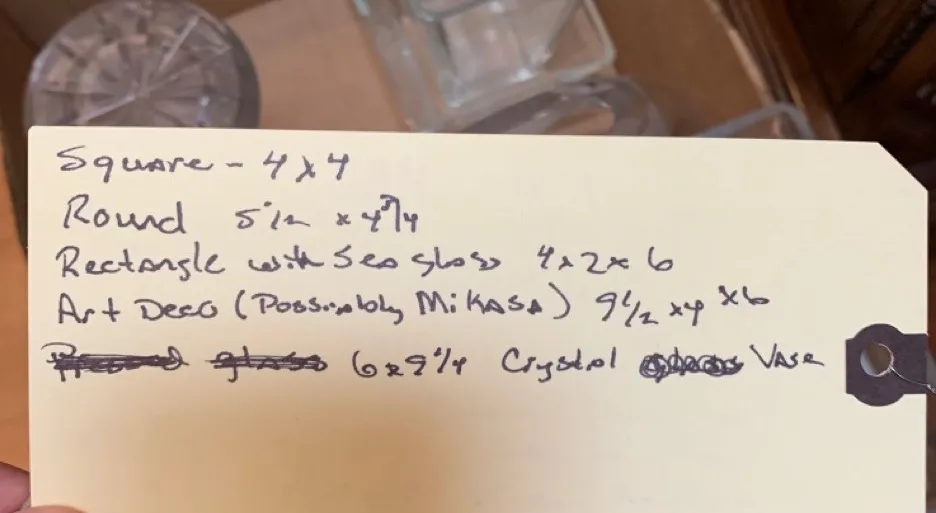 Square - 4 x 4
Round 5 1/2 x 4 3/4
Rectangle with Sea glass 4 x 2 x 6
Art Deco (Possibly Mikasa) 9 1/2 x 4 x 6
6 x 9 1/4 Crystal Vase